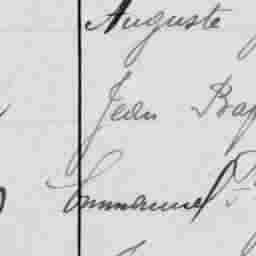 Auguste
Jean Bap
Emmanuel